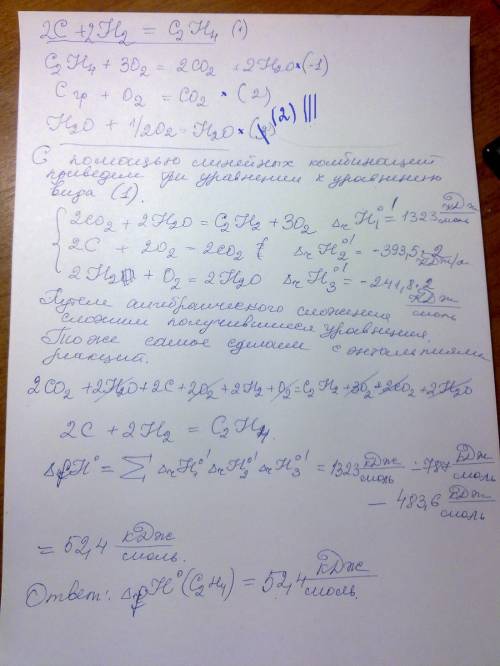 2C + 2H₂ = C₂H₄ (1)
C₂H₄ + 3O₂ = 2CO₂ + 2H₂O × (-1)
C гр + O₂ = CO₂ × (2)
H₂O + 1/2O₂ = H₂O × (2) (2) !!!
С помощью линейных комбинаций
приведем три уравнения к уравнению
вида (1).
2CO₂ + 2H₂O = C₂H₂ + 3O₂ ΔrH₁°' = 1323 кДж/моль
2C + 2O₂ = 2CO₂ ΔrH₂°' = -393,5·2 кДж/м
2H₂ + O₂ = 2H₂O ΔrH₃°' = -241,8·2 кДж/моль
Путем алгебраического сложения
сложим получившиеся уравнения.
То же самое сделаем с энтальпиями
реакций.
2CO₂ + 2H₂O + 2C + 2O₂ + 2H₂ + O₂ = C₂H₂ + 3O₂ + 2CO₂ + 2H₂O
2C + 2H₂ = C₂H₄.
ΔfH° = Σ ΔrH₁°' ΔrH₂°' ΔrH₃°' = 1323 кДж/моль - 787 кДж/моль
- 483,6 кДж/моль
= 52,4 кДж/моль.
Ответ: ΔfH°(C₂H₄) = 52,4 кДж/моль.